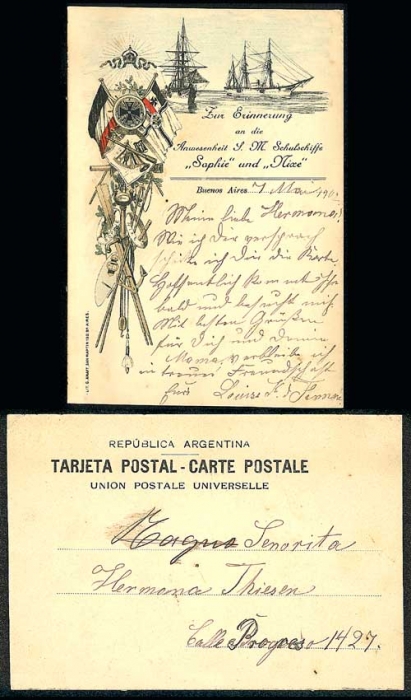 Zur Erinnerung
an die
Anwesenheit S. M. Schulschiffe
„Sophie" und „Nixe"
Buenos Aires 7 Mai 190
Meine liebe Hermoma!
Wie ich dir versprach
schike ich dir die Karte
Hoffentlich kommt ihr
bald und besucht mich
Mit besten Grüßen
für Dich und Deine
Mama, verbleibe ich
in treuer Freundschaft
für Louise
REPÚBLICA ARGENTINA
TARJETA POSTAL - CARTE POSTALE
UNION POSTALE UNIVERSELLE
Senorita
Hermoma Thiesen
Calle Progreso 1427.